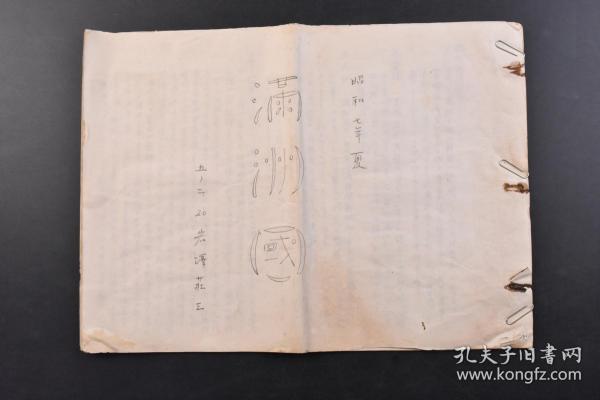 昭和七年夏
満洲國
五ノ二 20 岩澤荘三
孔夫子旧书网
www.kongfz.com